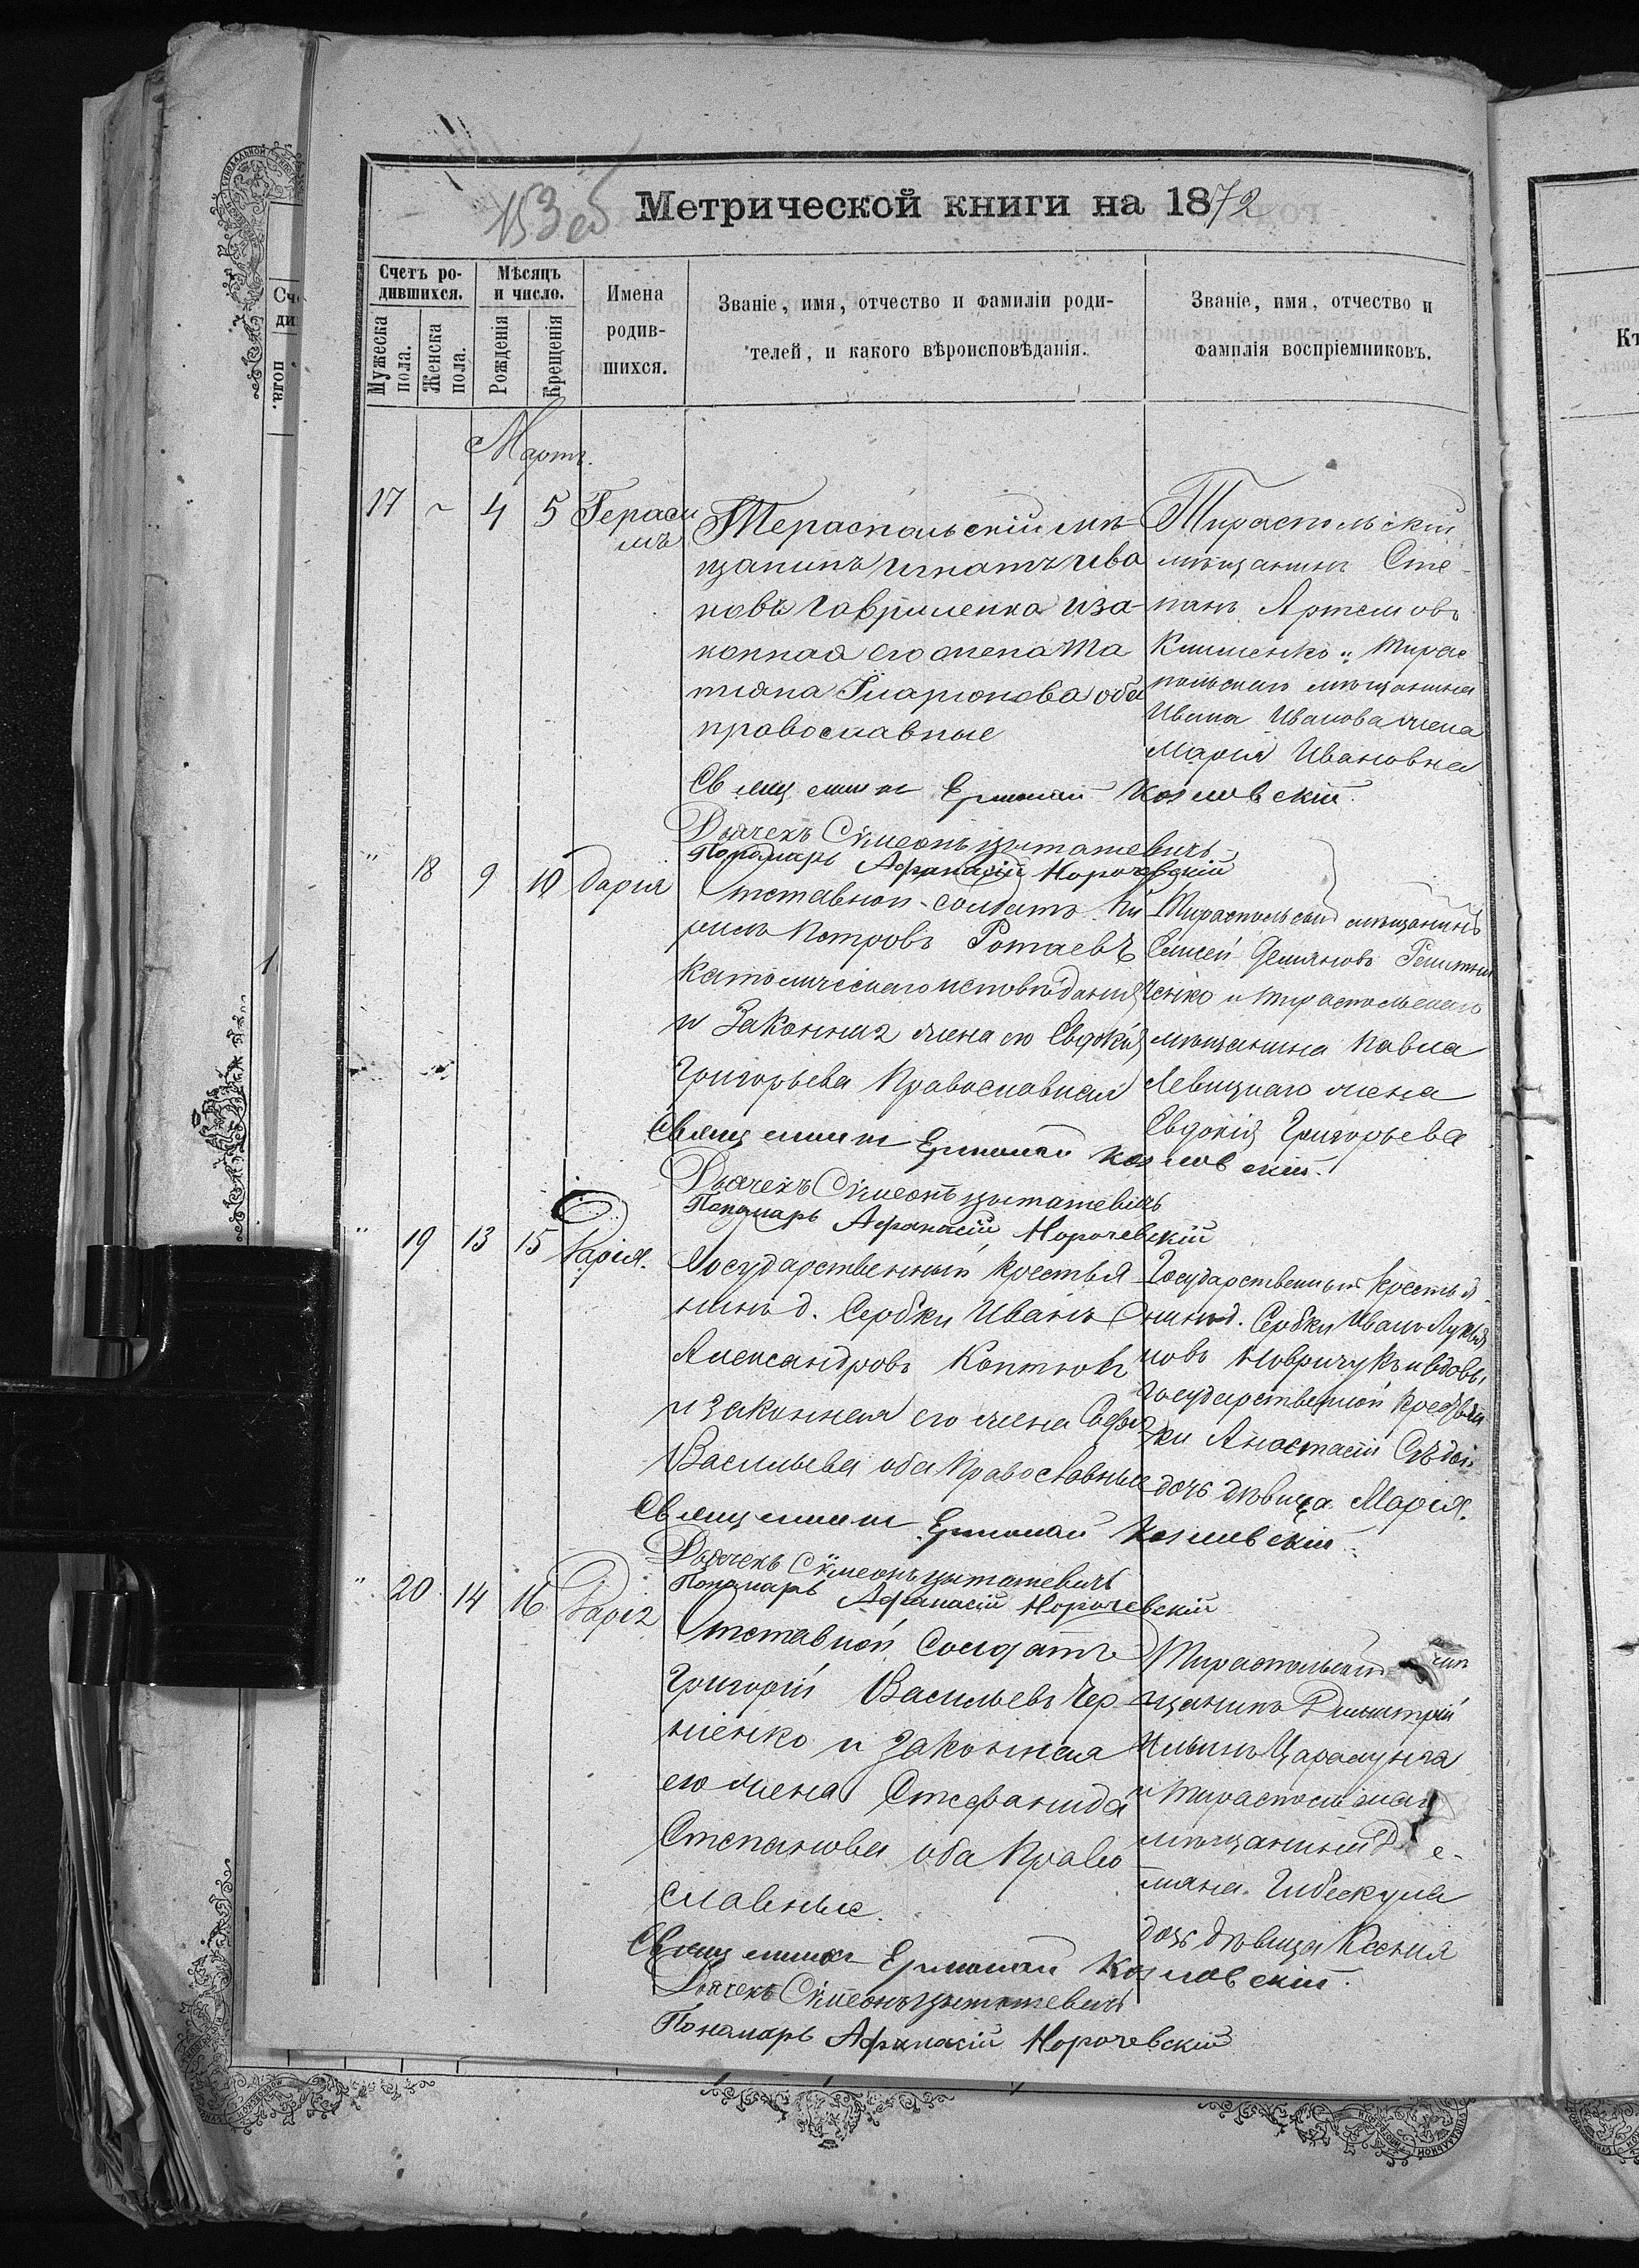 153 об
Метрической книги на 1872
Счетъ ро-
дившихся.
Мужеска
пола.
Женска
пола.
Мѣсяцъ
и число.
Рожденія
Крещенія
Имена
родив-
шихся.
Званіе, имя, отчество и фамиліи роди-
телей, и какого вѣроисповѣданія.
Званіе, имя, отчество и
фамилія воспріемниковъ.
Мартъ.
17 ~ 4 5 Гераси
мъ
Тераспольскій мѣ-
щанинъ Игнатъ Ива
новъ Гавриленко и за-
конная его жена Та
тіяна Иларионова оба
православные
Тираспольскій
мѣщанинъ Сте-
панъ Артемовъ
Клименко и Тирас-
польскаго мѣщанина
Ивана Иванова жена
Марія Ивановна
Священникъ Ермолай Козловскій.
Дьячекъ Сѵмеонъ
Пономарь Афанасій Норочевскій
" 18 9 10 Дарія
Отставной солдатъ Ки
рилъ Петровъ Ротаевъ
католическаго исповѣданія
и законная жена его Евдокія
Григорьева Православная
Тираспольскій мѣщанинъ
Елисей Демяновъ
ченко и тираспольскаго
мѣщанина Павла
Левицкаго жена
Евдокія Григорьева
Священникъ Ермолай Козловскій.
Дьячекъ Сѵмеонъ
Пономарь Афанасій Норочевскій
" 19 13 15 Дарія.
Государственный крестья-
нинъ д. Сербки Иванъ
Александровъ Коптювъ
и законная его жена Софія
Васильева оба Православные
Государственный крестья-
нинъ д. Сербки Иванъ Лукья
новъ и вдовы
государственной крестьян
ки Анастасіи
дочь дѣвица Марія.
Священникъ Ермолай Козловскій.
Дьячекъ Сѵмеонъ
Пономарь Афанасій Норочевскій
" 20 14 16 Дарія
Отставной Солдатъ
Григорій Васильевъ Чер-
ненко и законная
его жена Стефанида
Степанова оба Право
славные.
Тираспольскій
щанинъ Димитрій
Ильинъ Царалунга
и тираспольскаго
мѣщанина
дочь дѣвица Ксенія
Священникъ Ермолай Козловскій.
Дьячекъ Сѵмеонъ
Пономарь Афанасій Норочевскій